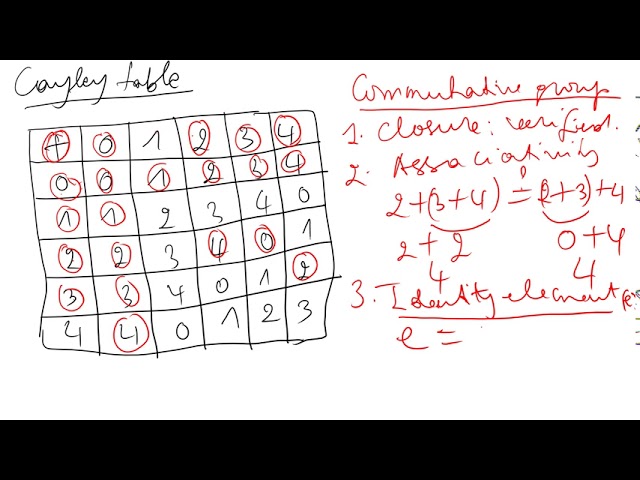 Cayley table
+ 0 1 2 3 4
0 0 1 2 3 4
1 1 2 3 4 0
2 2 3 4 0 1
3 3 4 0 1 2
4 4 0 1 2 3
Commutative group
1. Closure: verified.
2. Associativity
2+(3+4) ?= (2+3)+4
2+2 0+4
4 4
3. Identity element (e
e =